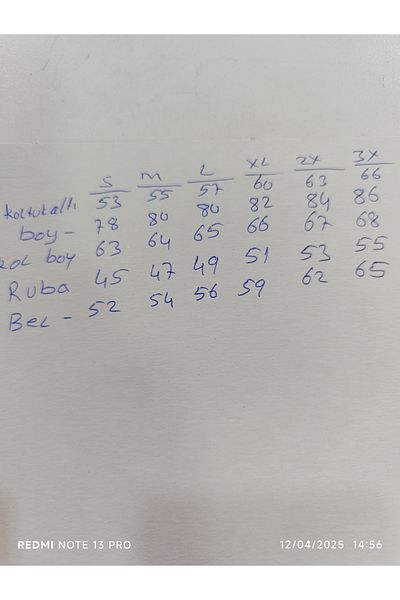 S M L XL 2X 3X
koltukaltı 53 55 57 60 63 66
boy - 78 80 80 82 84 86
kol boy 63 64 65 66 67 68
Ruba 45 47 49 51 53 55
Bel - 52 54 56 59 62 65
REDMI NOTE 13 PRO 12/04/2025 14:56